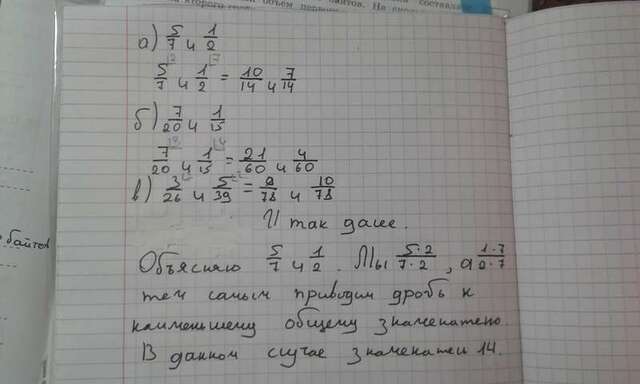 а) 5/7 и 1/2
5/7 и 1/2 = 10/14 и 7/14
б) 7/20 и 1/15
7/20 и 1/15 = 21/60 и 4/60
в) 3/26 и 5/39 = 9/78 и 10/78
И так далее.
Объясняю 5/7 и 1/2. Мы 5·2/7·2, а 1·7/2·7
тем самым приводим дробь к
наименьшему общему знаменателю.
В данном случае знаменатель 14.
байтов